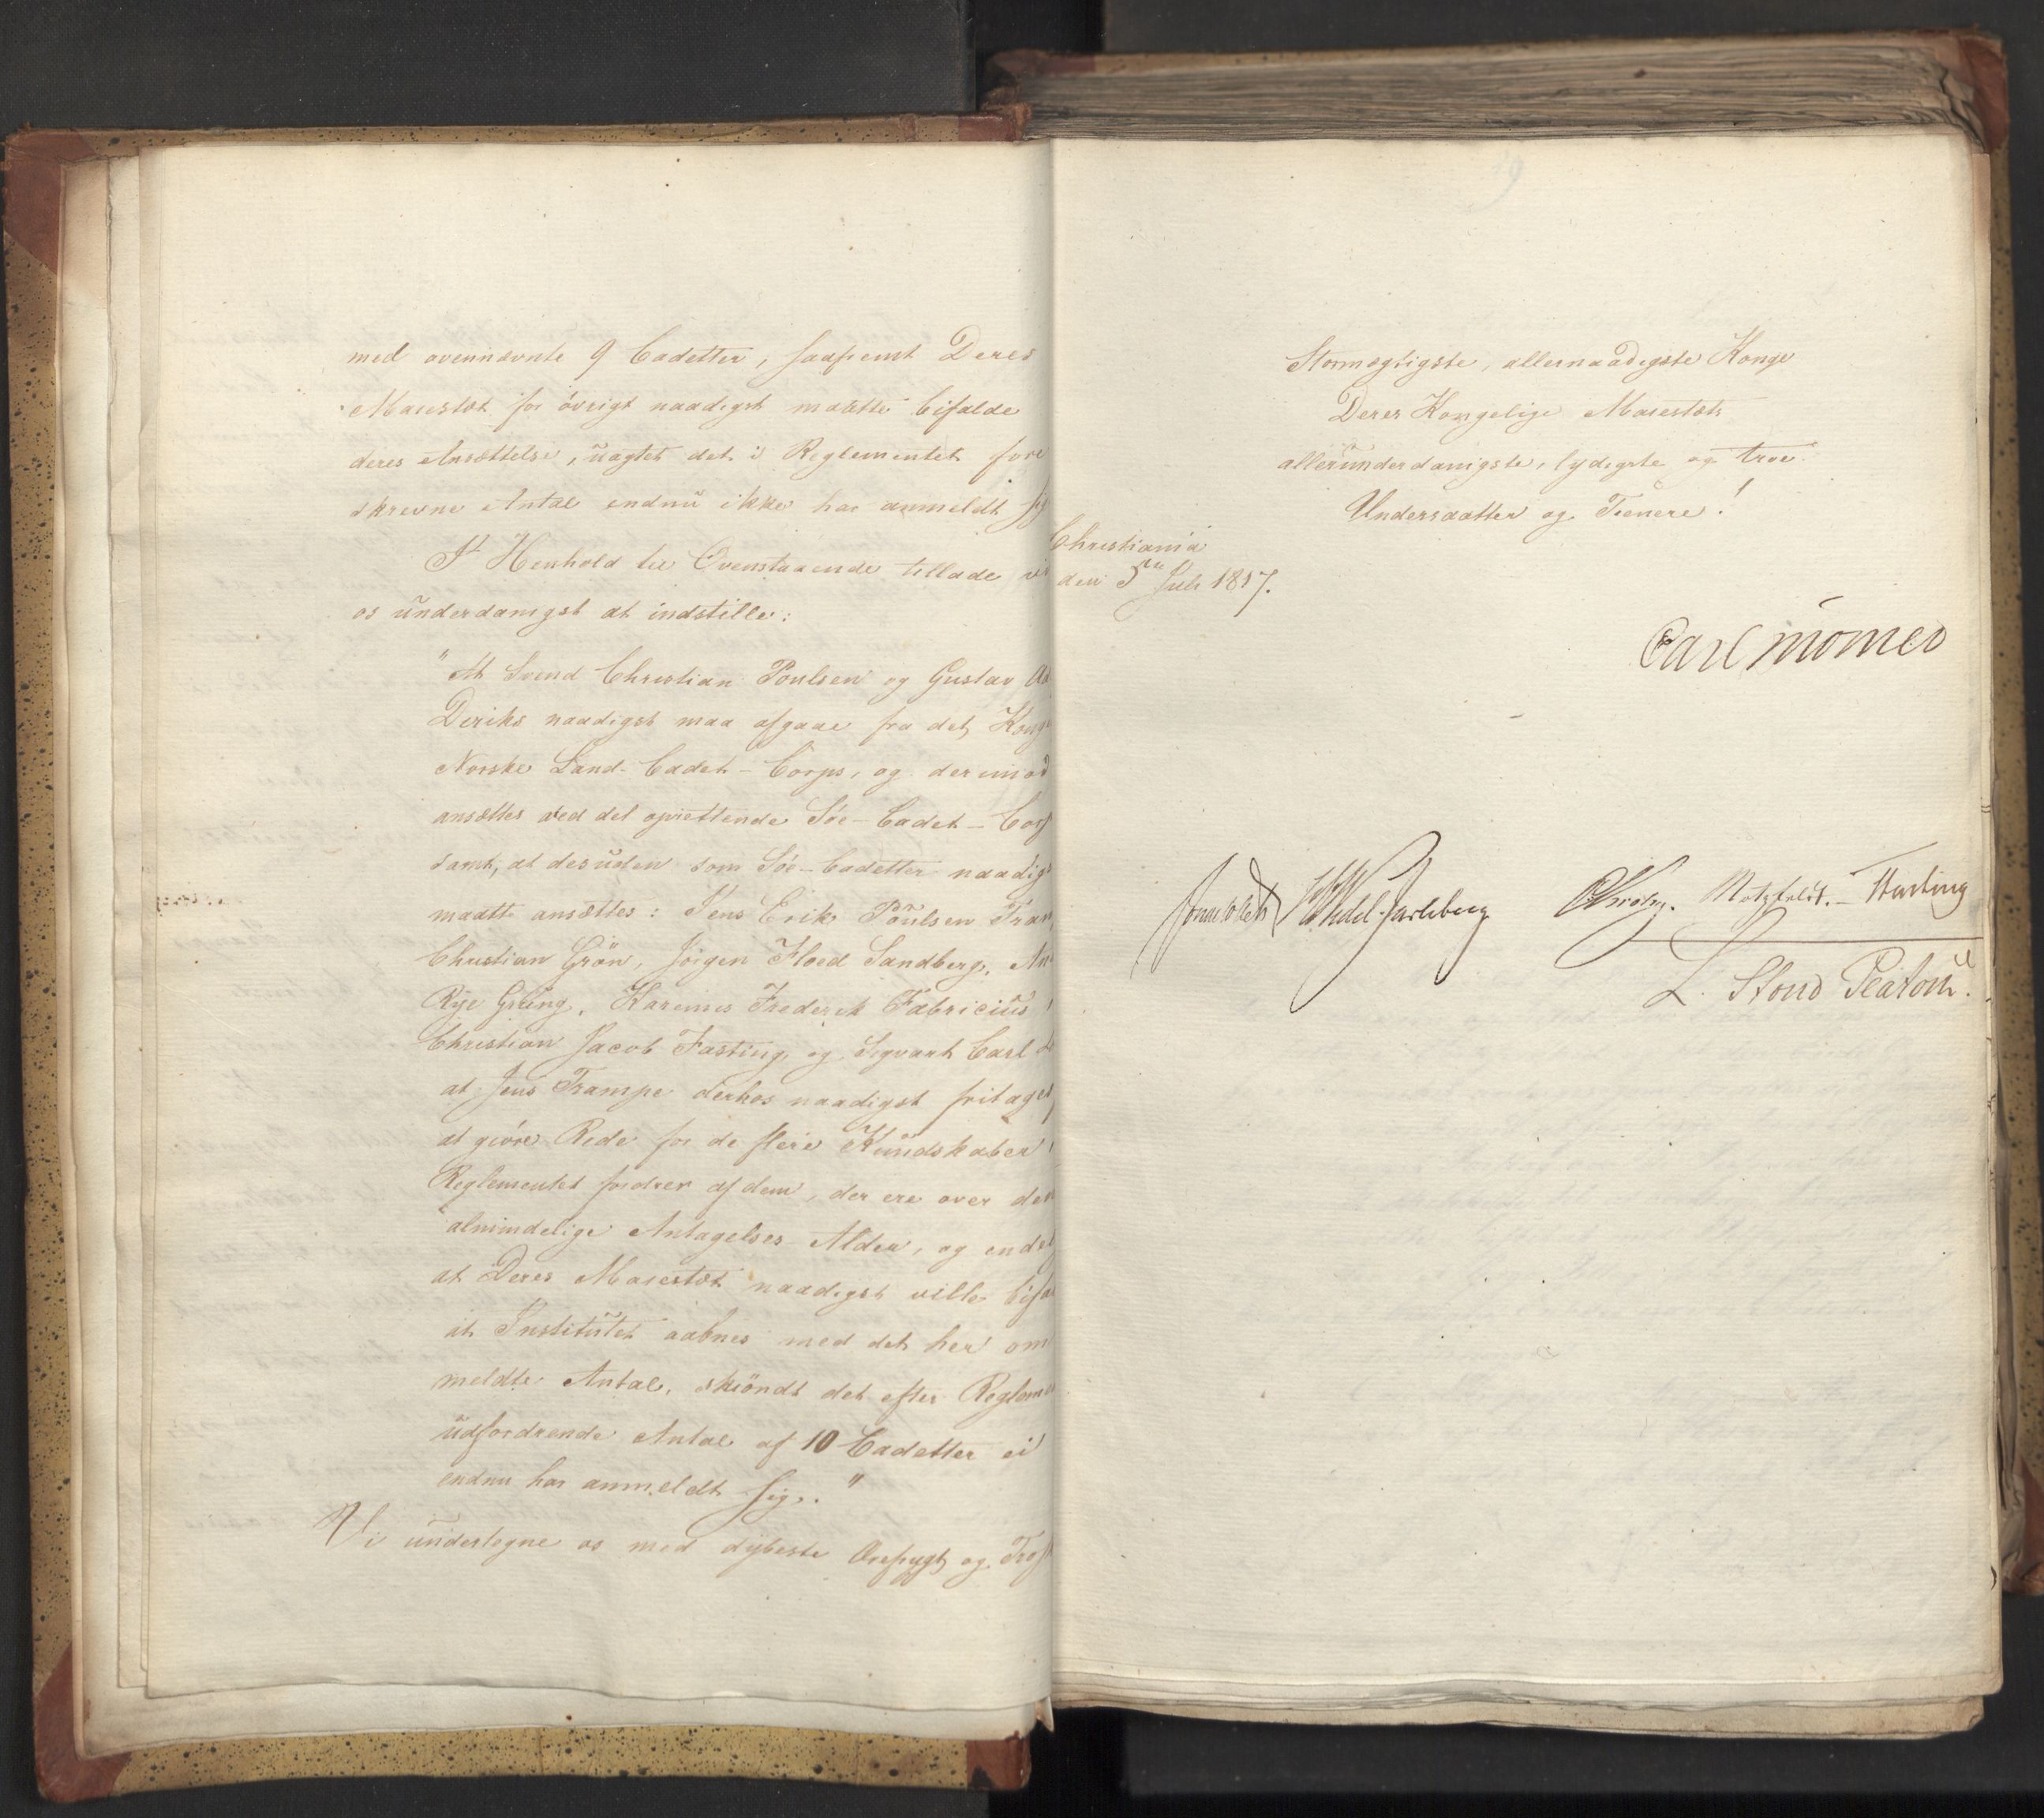 med ovennævnte 9 Cadetter, saafremt Deres
Majestæt for övrigt naadigst maatte bifalde
deres Ansættelse, uagtet det i Reglementet fore
skrevne Antal endnu ikke har anmeldt sig
I Henhold til Ovenstaaende tillade vi
os underdanigst at indstille:
"At Svend Christian Poulsen og Gustav Ad
Deriks naadigst maa afgaae fra det Konge
Norske Land-Cadet-Corps, og derimod
ansættes ved det oprettende Söe-Cadet-Corp
samt, at desuden som Söe-Cadetter naadigs
maatte ansættes: Jens Erik Poulsen Tram
Christian Grön, Jörgen Floed Sandberg,
Rye Grüng, Frederik Fabricius
Christian Jacob Fasting, og Sigvart Carl
at Jens Trampe derhos naadigst fritages
at giöre Rede for de flere Kundskaber
Reglementet fordrer af dem, der ere over den
almindelige Antagelses Alder, og endel
at Deres Majestæt naadigst ville bifal
at Institutet aabnes med det her om
meldte Antal, skiöndt det efter Reglem
udfordrende Antal af 10 Cadetter ei
endnu har anmeldt sig."
Vi undertegne os med dybeste Ærefrygt og
Stormægtigste, allernaadigste Konge
Deres Kongelige Majestæts
allerunderdanigste, lydigste og troe
Undersaatter og Tienere!
Christiania
den 5te Juli 1817.
Carl Mörner
Jonas Collett H Wedel-Jarlsberg Krohg. Motzfeldt. Hartung
L. Stoud Platou.